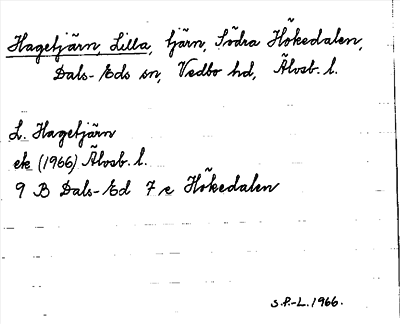 Hagetjärn, Lilla, tjärn, Södra Hökedalen,
Dals-Eds sn, Vedbo hd, Älvsb. l.
L. Hagetjärn
ek (1966) Älvsb. l.
9 B Dals-Ed 7 e Hökedalen
S.P.-L. 1966.